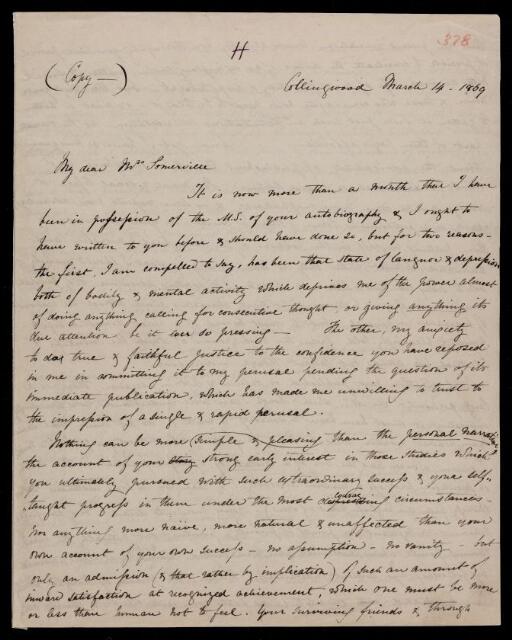 H
378
(Copy—)
Collingwood March 14 - 1869
My dear Mrs Somerville
It is now more than a month that I have
been in possession of the M.S. of your autobiography & I ought to
have written to you before & should have done so, but for two reasons -
the first, I am compelled to say, has been that state of languor & depression
both of bodily & mental activity which deprives me of the power almost
of doing anything calling for consecutive thought or giving anything its
due attention be it ever so pressing — The other, my anxiety
to do true & faithful justice to the confidence you have reposed
in me in committing it to my perusal pending the question of its
immediate publication, which has made me unwilling to trust to
the impression of a single & rapid perusal.
Nothing can be more simple & pleasing than the personal narrative
the account of your strong early interest in those studies which
you ultimately pursued with such extraordinary success & your self-
taught progress in them under the most circumstances -
nor anything more naïve, more natural & unaffected than your
own account of your own success - no assumption - no vanity - but
only an admission (& that rather by implication) of such an amount of
inward satisfaction at recognized achievement, which one must be more
or less than human not to feel. Your surviving friends & through